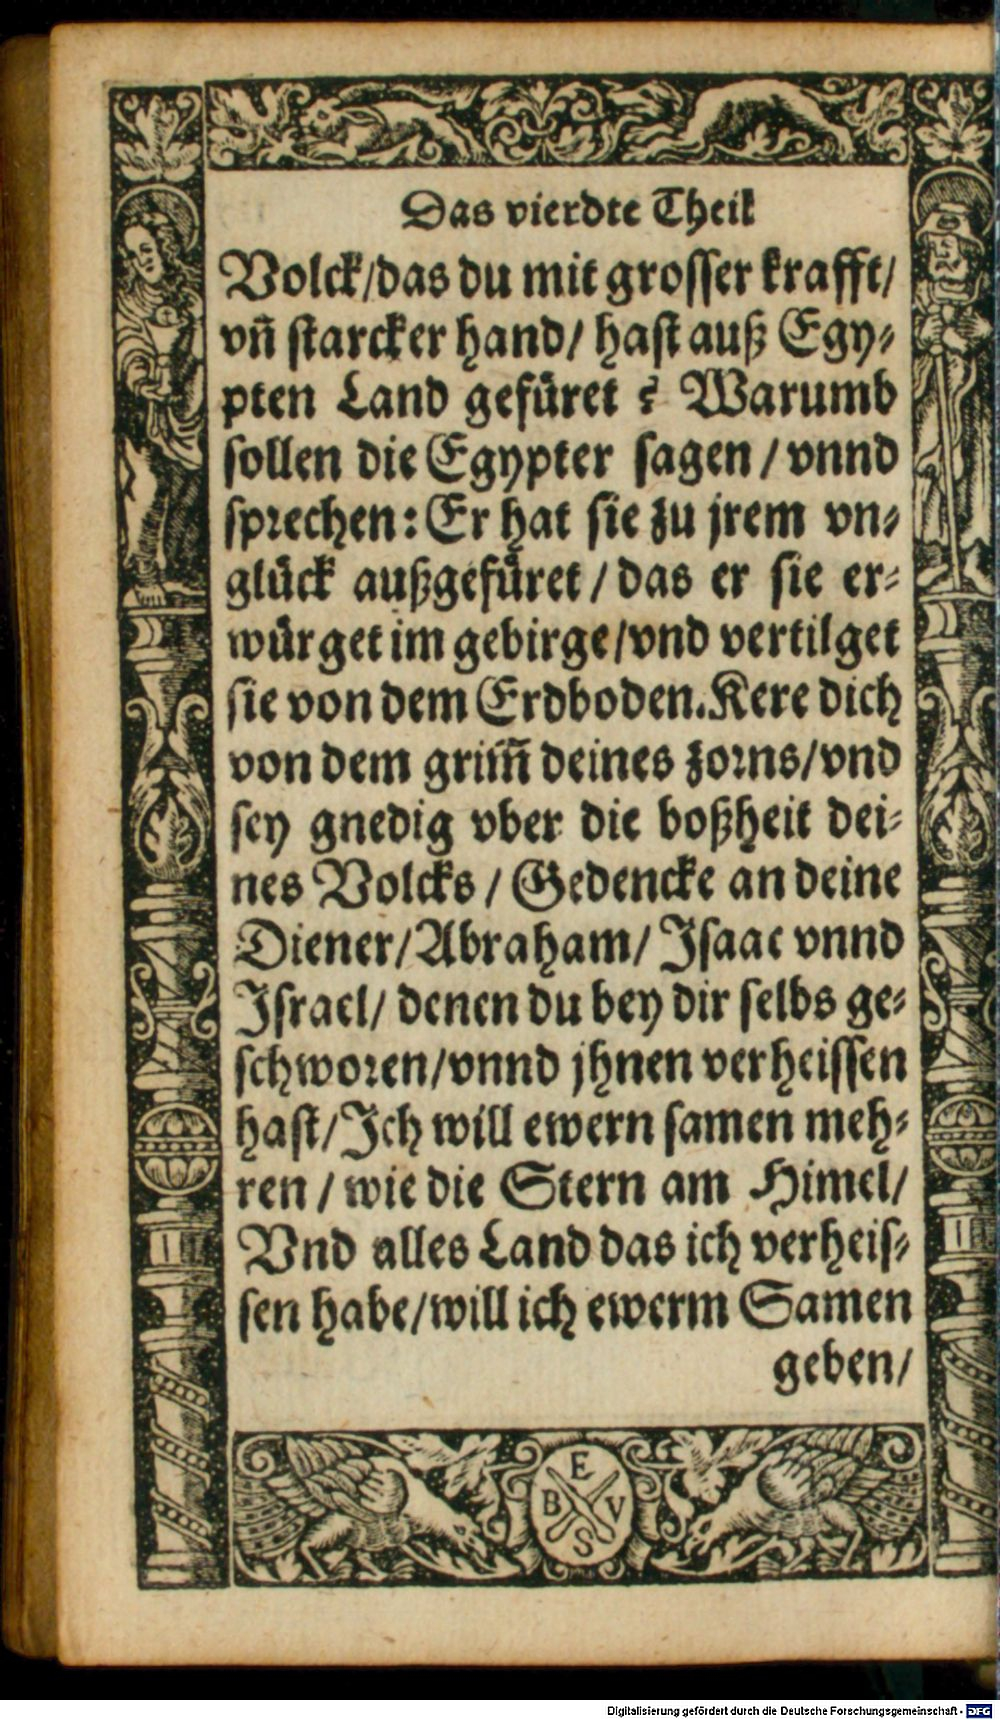 Das vierdte Theil
Volck/das du mit grosser krafft/
vñ starcker hand/ hast auß Egy⸗
pten Land gefüret ? Warumb
sollen die Egypter sagen / vnnd
sprechen: Er hat sie zu jrem vn⸗
glück außgefüret / das er sie er⸗
würget im gebirge/vnd vertilget
sie von dem Erdboden. Kere dich
von dem grim̃ deines zorns/vnd
sey gnedig vber die boßheit dei⸗
nes Volcks / Gedencke an deine
Diener/Abraham/ Isaac vnnd
Israel/ denen du bey dir selbs ge⸗
schworen/vnnd jhnen verheissen
hast/Ich will ewern samen meh⸗
ren / wie die Stern am Himel/
Vnd alles Land das ich verheis⸗
sen habe/will ich ewerm Samen
geben/
E
B V
S
Digitalisierung gefördert durch die Deutsche Forschungsgemeinschaft - DFG